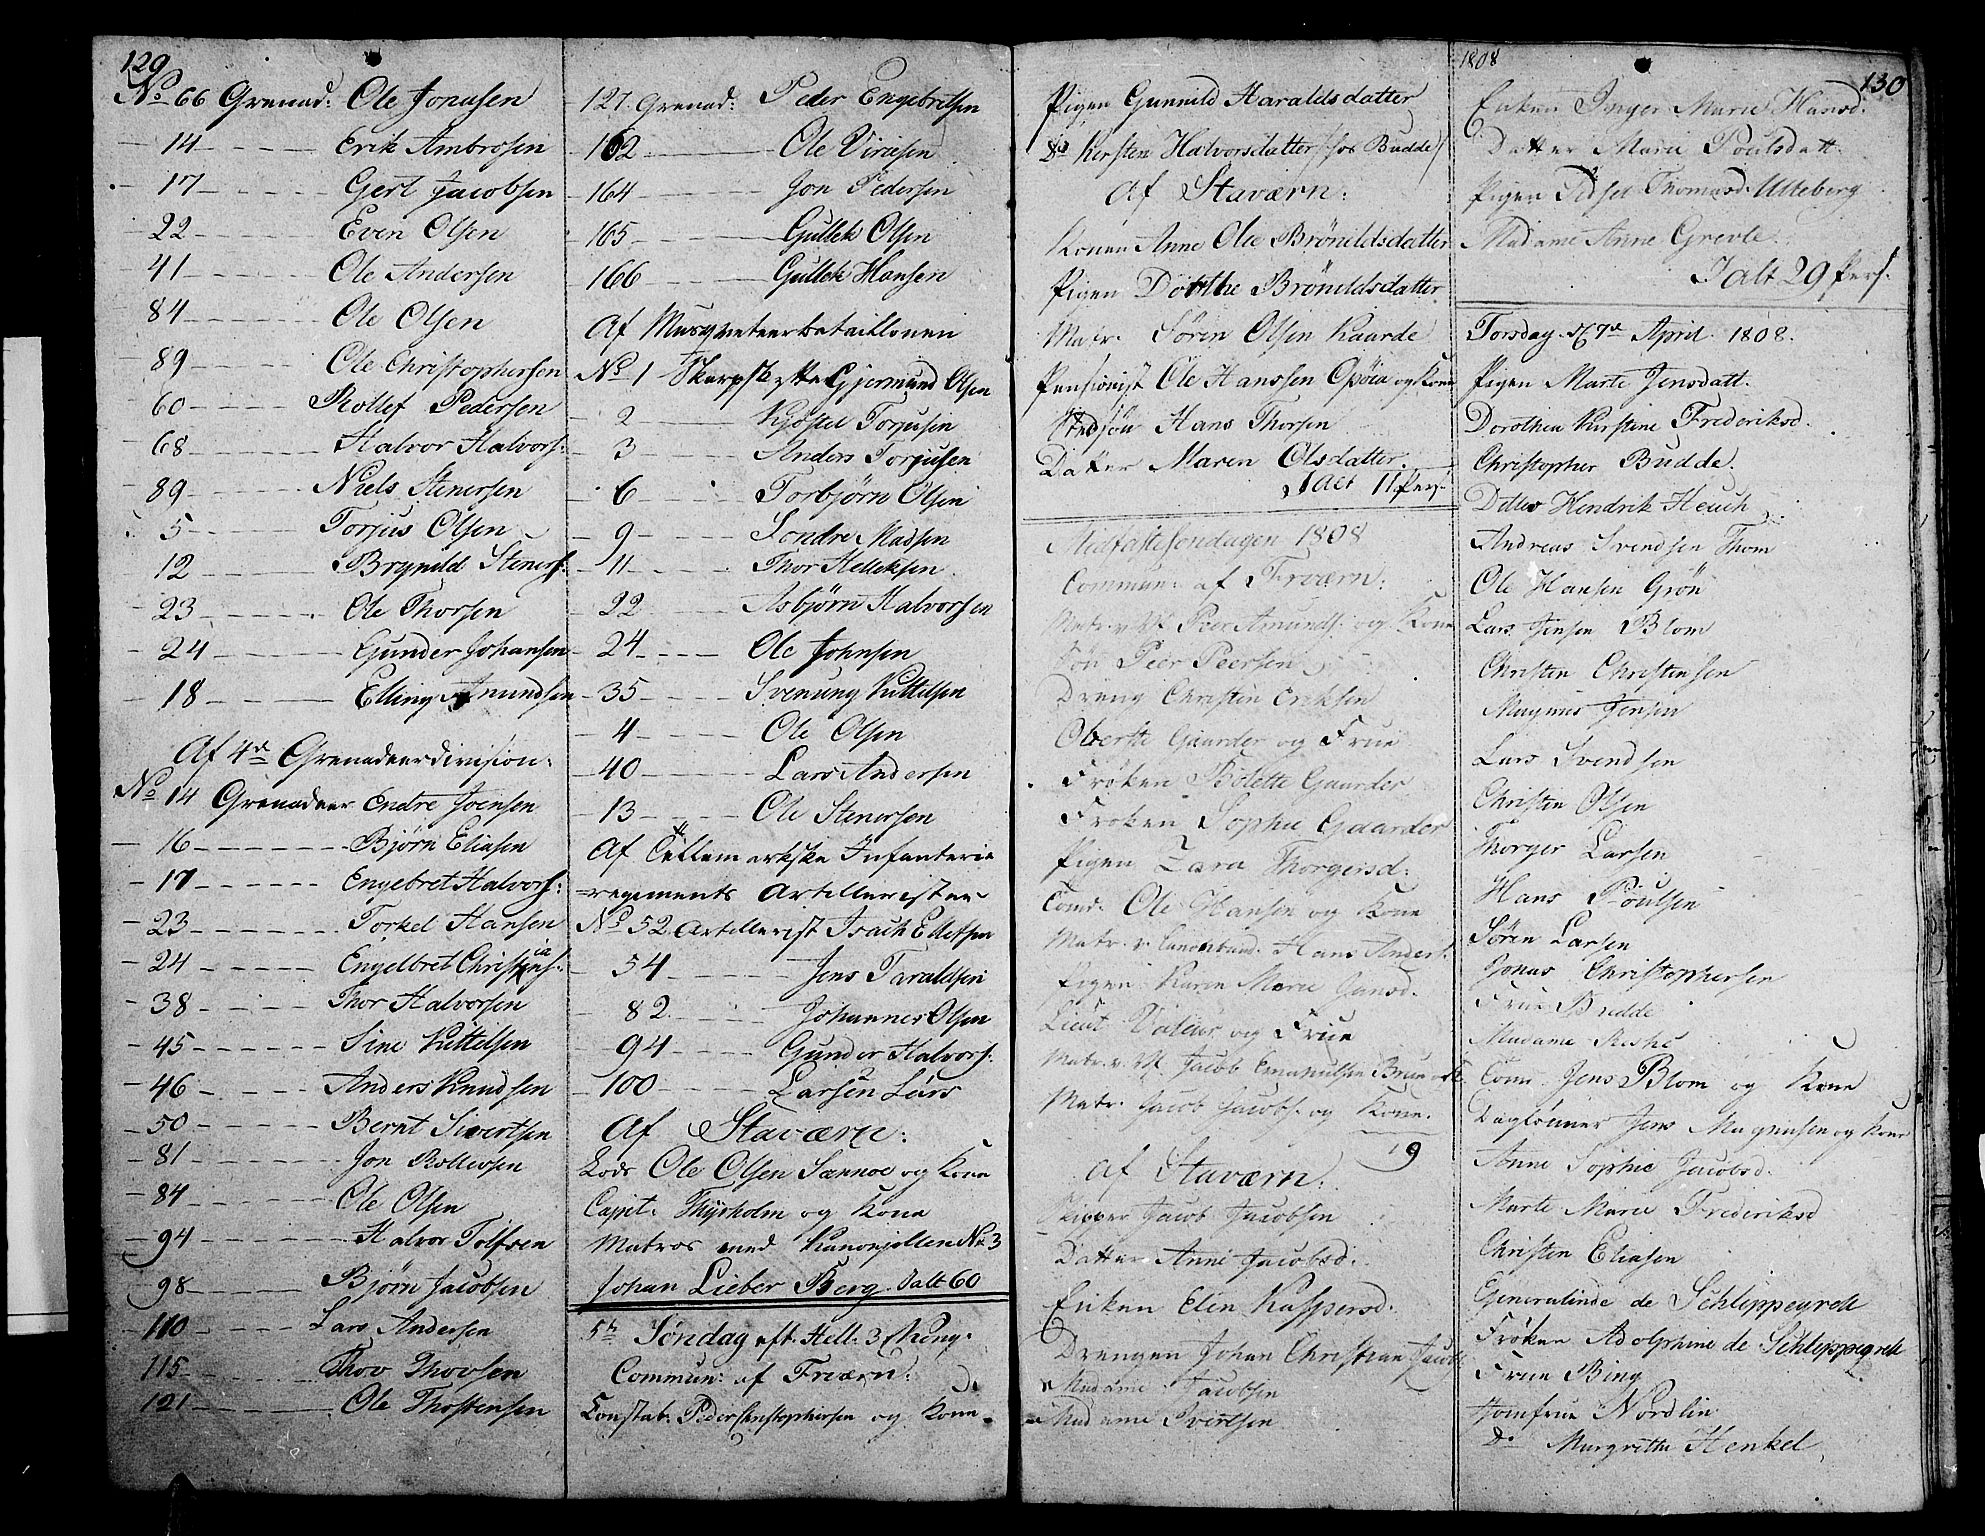 129
No 66 Grenad: Ole Jonasen
14 Erik Ambrosen
17 Gert Jacobsen
22 Even Olsen
41 Ole Andersen
84 Ole Olsen
89 Ole Christophersen
60 Rollef Pedersen
68 Halvor Halvors:
89 Niels Stenersen
5 Torjus Olsen
12 Brynild Steners:
23 Ole Thorsen
24 Gunder Johansen
18 Elling Amundsen
Af 4de Grenadeerdivision:
No 14 Grenadeer Endre Joensen
16 Bjørn Eliasen
17 Engebret Halvors:
23 Torkel Hansen
24 Engelbret
38 Thor Halvorsen
45 Sine Kittelsen
46 Anders Knudsen
50 Bernt Sivertsen
81 Jon Rollevsen
84 Ole Olsen
94 Halvor Tolfsen
98 Bjørn Jacobsen
110 Lars Andersen
115 Thov Thovsen
121 Ole Thostensen
127 Grenad: Peder Engebretsen
162 Ole
164 Jon Pedersen
165 Gullek Olsen
166 Gullek Hansen
Af Musqveteerbataillonen
No 1 Skarpskytte Gjermund Olsen
2 Kjøstel Torjusen
3 Anders Torjusen
6 Torbjørn Olsen
9 Sondre Madsen
11 Thor Helleksen
22 Asbjørn Halvorsen
24 Ole Johnsen
35 Svenung Kittelsen
4 Ole Olsen
40 Lars Andersen
13 Ole Stenersen
Af Tellemarkske Infanterie
=regiments Artillerister
No 52 Artillerist Isach Ellefsen
54 Jens Taraldsen
82 Johannes Olsen
94 Gunder Halvors:
100 Larsen Lars
Af Staværn:
Lods Ole Olsen Sannoe og Kone
Capit. Thyrholm og Kone
Matros med Kanonjollen No 3
Johan Lieber Berg. Ialt 60
Søndag eft. Hell. 3 Kong.
Commun: af Frværn:
Constab. Peder Christophersen og Kone
Pigen Gunnild Haraldsdatter
do Kersten Halvorsdatter (hos Budde)
Af Staværn:
Konen Anne Olee Brønildsdatter
Pigen Dorthe Brønildsdatter
Matr. Søren Olsen Kaarde
Pensionist Ole Hanssen Opøien og Kone
Stedsøn Hans Thorsen
Datter Maren Olsdatter
Ialt 11 Pers.
Midfastesøndagen 1808
Commun: af Frværn:
Matr. Peer Amunds. og Kone
Søn Peer Peersen
Dreng Christen Eriksen
Oberste Gaarder og Frue
Frøken Bolette Gaarder
Frøken Sophie Gaarder
Pigen Zara Thorgersd:
Comd. Ole Hansen og Kone
Matr. v. Hans Anders.
Pigen Karen Marie Hansd.
Lieut Valeur og Frue
Matr. v. Jacob Emanuelsen Bruun
Matr. Jacob Jacobs. og Kone.
19
Af Staværn:
Skipper Jacob Jacobsen
Datter Anne Jacobsd.
Enken Elen Kaspersd.
Drengen Johan Christian Jacobs.
Madame Jacobsen
Madame Ivertsen
1808
130
Enken Inger Marie Hansd.
Datter Marie Poulsdatt.
Pigen Sidsel Thomasd. Ulleberg
Madame Anne Greve
Ialt 29 Pers.
Torsdag d. 7de April 1808.
Pigen Marte Jensdatt.
Dorothea Kirstine Frederiksd.
Christopher Budde
Ditlev Hendrik Heuch
Andreas Svendsen Thom
Ole Hansen Grøn
Lars Jensen Blom
Christen Christensen
Magnus Jensen
Lars Svendsen
Christen Olsen
Thorger Larsen
Hans Poulsen
Søren Larsen
Jonas Christophersen
Frue Budde
Madame Riske
Com. Jens Blom og Kone
Daglønner Jens Magnusen og Kone
Anne Sophie Jacobsd.
Marte Marie Frederiksd
Christen Eliasen
Generalinde de Schleppegrell
Frøken Adolphine de Schleppegrell
Frue Bing
Jomfrue Nordlin
Do Margrethe Henkel